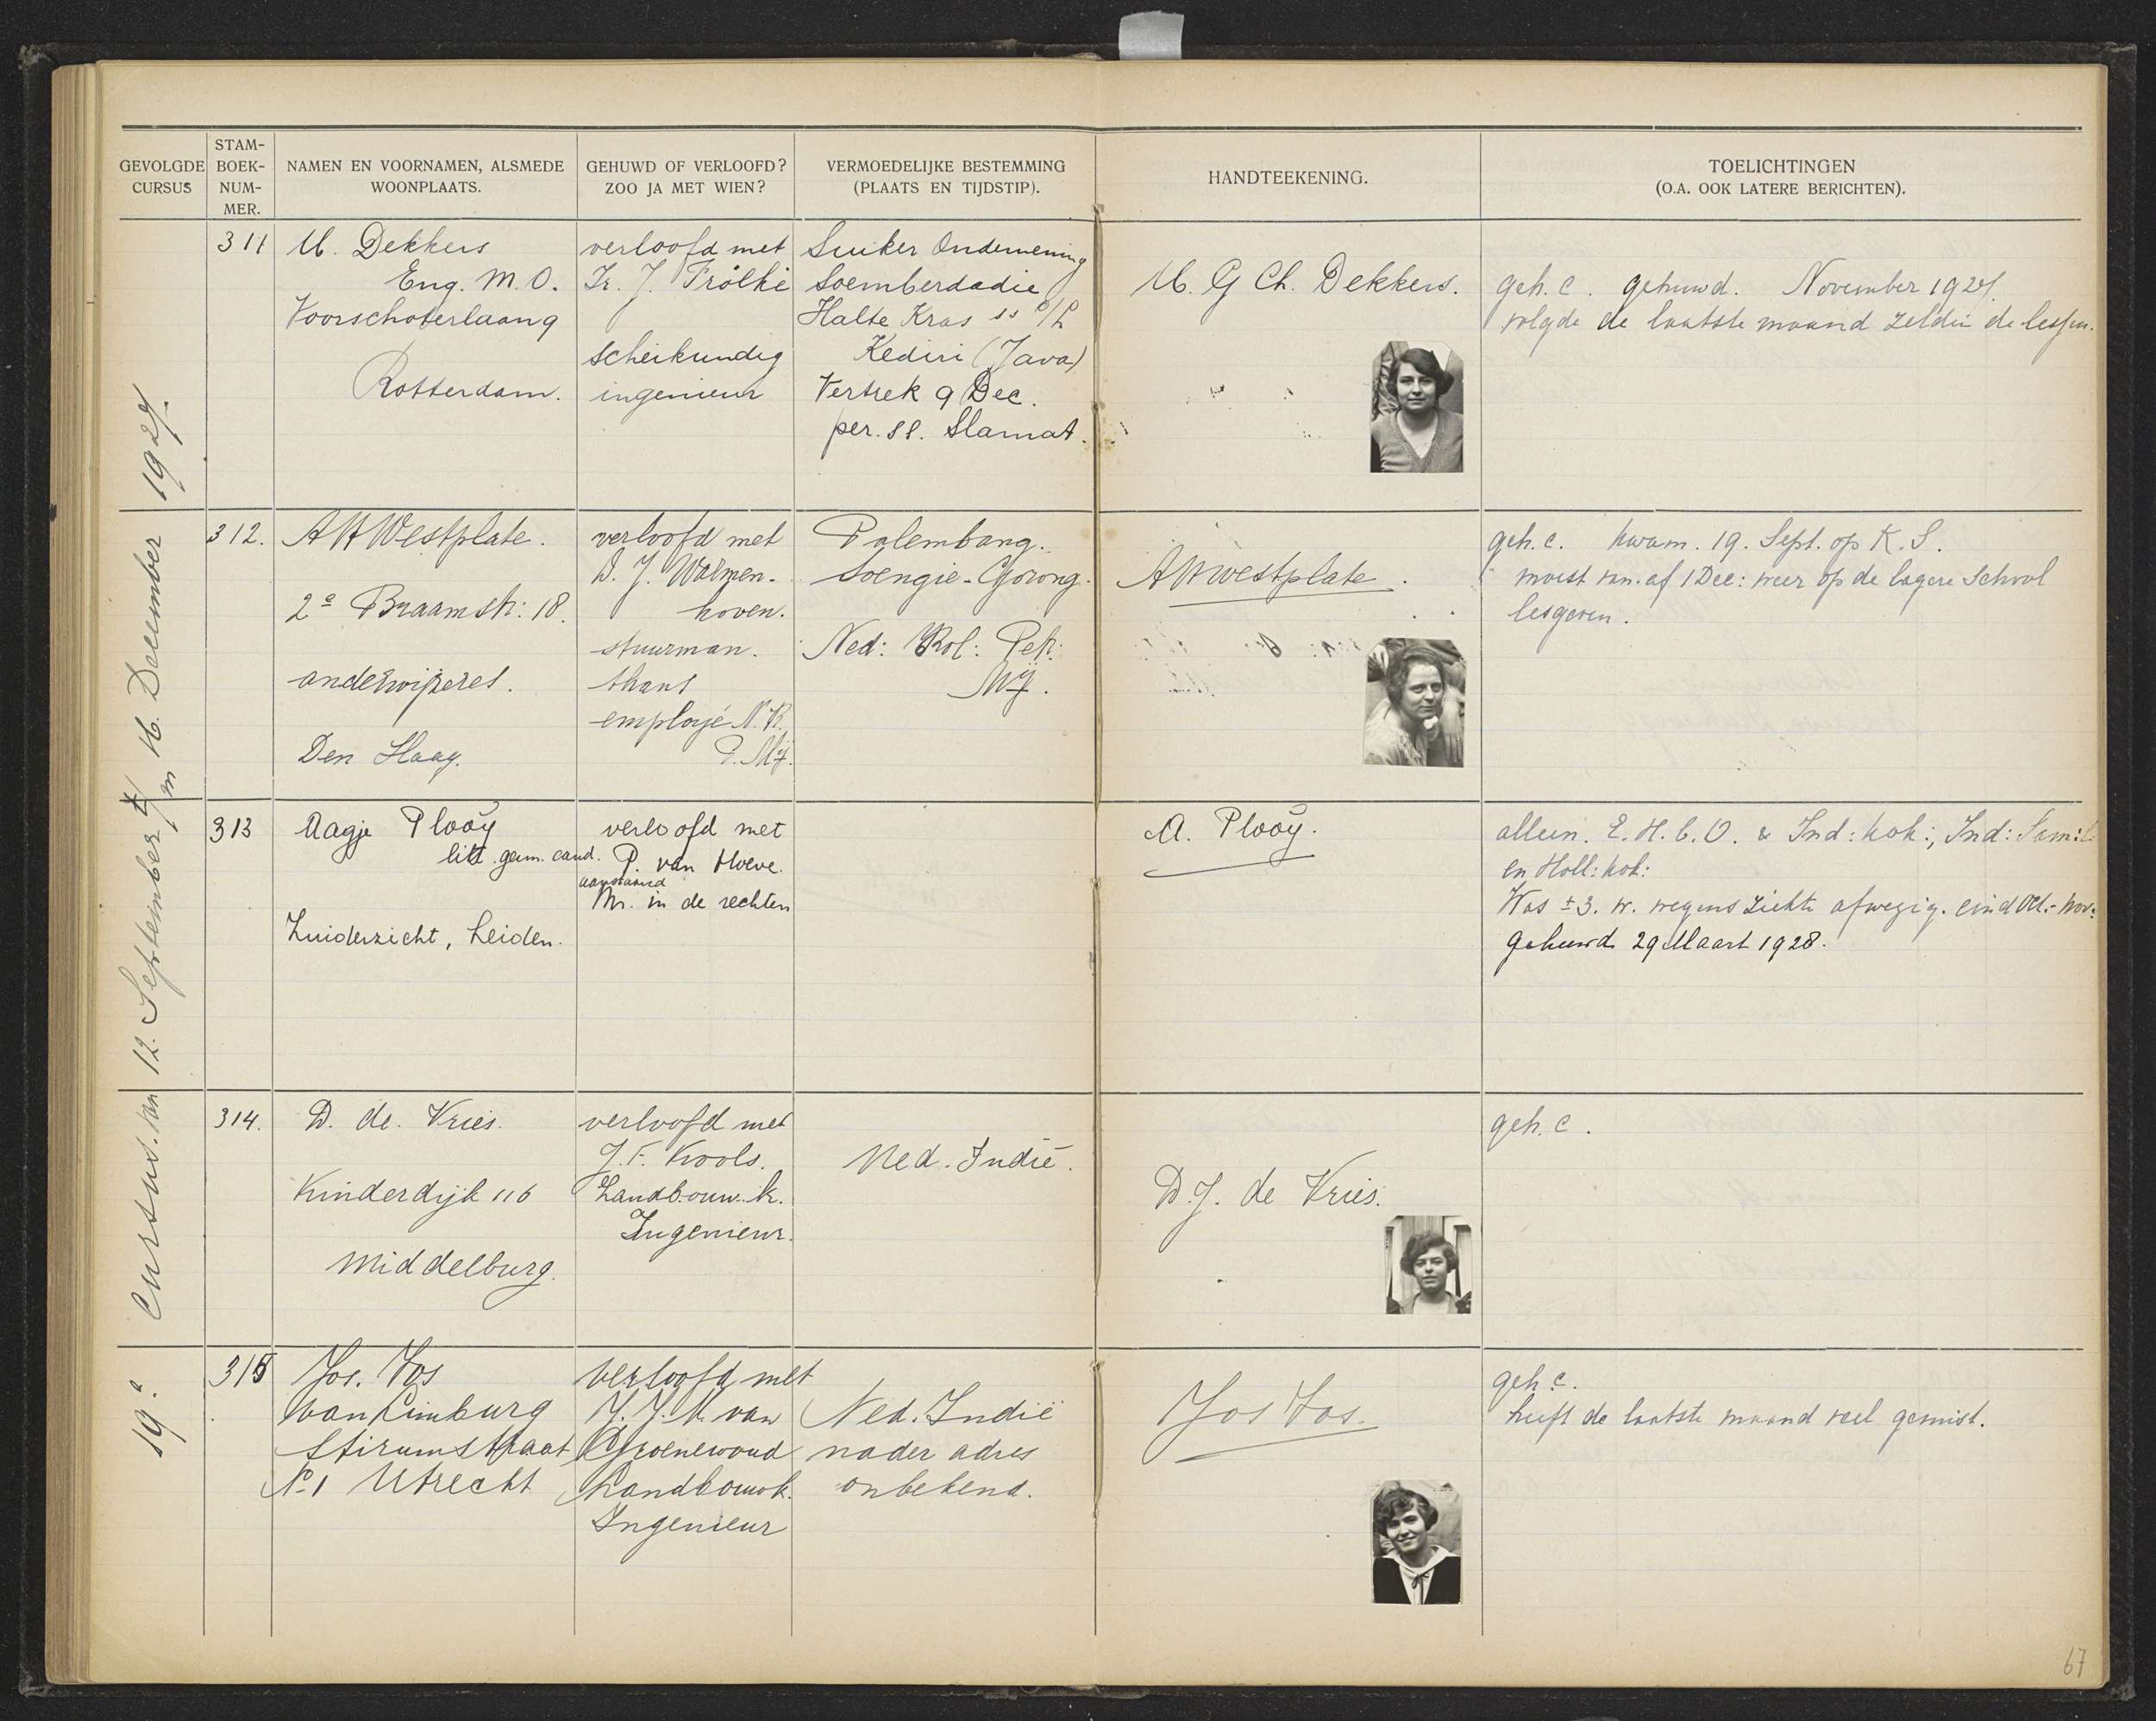 GEVOLGDE CURSUS
STAM-BOEK-NUM-MER.
NAMEN EN VOORNAMEN, ALSMEDE WOONPLAATS.
GEHUWD OF VERLOOFD? ZOO JA MET WIEN?
VERMOEDELIJKE BESTEMMING (PLAATS EN TIJDSTIP).
HANDTEEKENING.
TOELICHTINGEN (O.A. OOK LATERE BERICHTEN).
19e Cursus van 12. September t/m 16. December 1927.
311
M. Dekkers
Eng. M.O.
Voorschoterlaan 9
Rotterdam.
verloofd met
Ir. J. Frölke
scheikundig
ingenieur
Suiker Onderneming
Soemberdadie
Halte Kras ss
Kediri (Java)
Vertrek 9 Dec.
per. ss. Slamat.
M. G Ch. Dekkers.
geh. c. gehuwd. November 1927.
volgde de laatste maand zelden de lessen.
312.
A H Westplate.
2e Braamstr: 18.
onderwijzeres.
Den Haag.
verloofd met
D. J. Walmen-
hoven.
stuurman.
thans
employé N.K.
P. Mij.
Palembang.
Soengie-Gorong.
Ned: Kol: Petr:
Mij.
AHWestplate.
geh. c. kwam. 19. Sept. op K. S.
moest van. af 1 Dec: weer op de lagere School
lesgeven.
313
Aagje Plooÿ
litt. germ. cand.
Zuiderzicht, Leiden.
verloofd met
P. van Hoeve.
aanstaand
Mr. in de rechten
A. Plooÿ.
alleen. E.H.B.O. & Ind: kok:, Ind: Samil:
en Holl: kok:
Was ± 3. w. wegens ziekte afwezig. eind Oct.- Nov:
Gehuwd 29 Maart 1928.
314.
D. de. Vries.
Kinderdijk 116
Middelburg.
verloofd met
J. F. Kools.
Landbouw. k.
Ingenieur.
Ned. Indië.
D. J. de Vries.
geh. c.
315
Jos. Vos
van Limburg
Stirumstraat
No 1 Utrecht
verloofd met
J. J. M. van
Groenewoud
Landbouwk.
Ingenieur
Ned. Indië
nader adres
onbekend.
Jos Vos.
geh c.
heeft de laatste maand veel gemist.
67